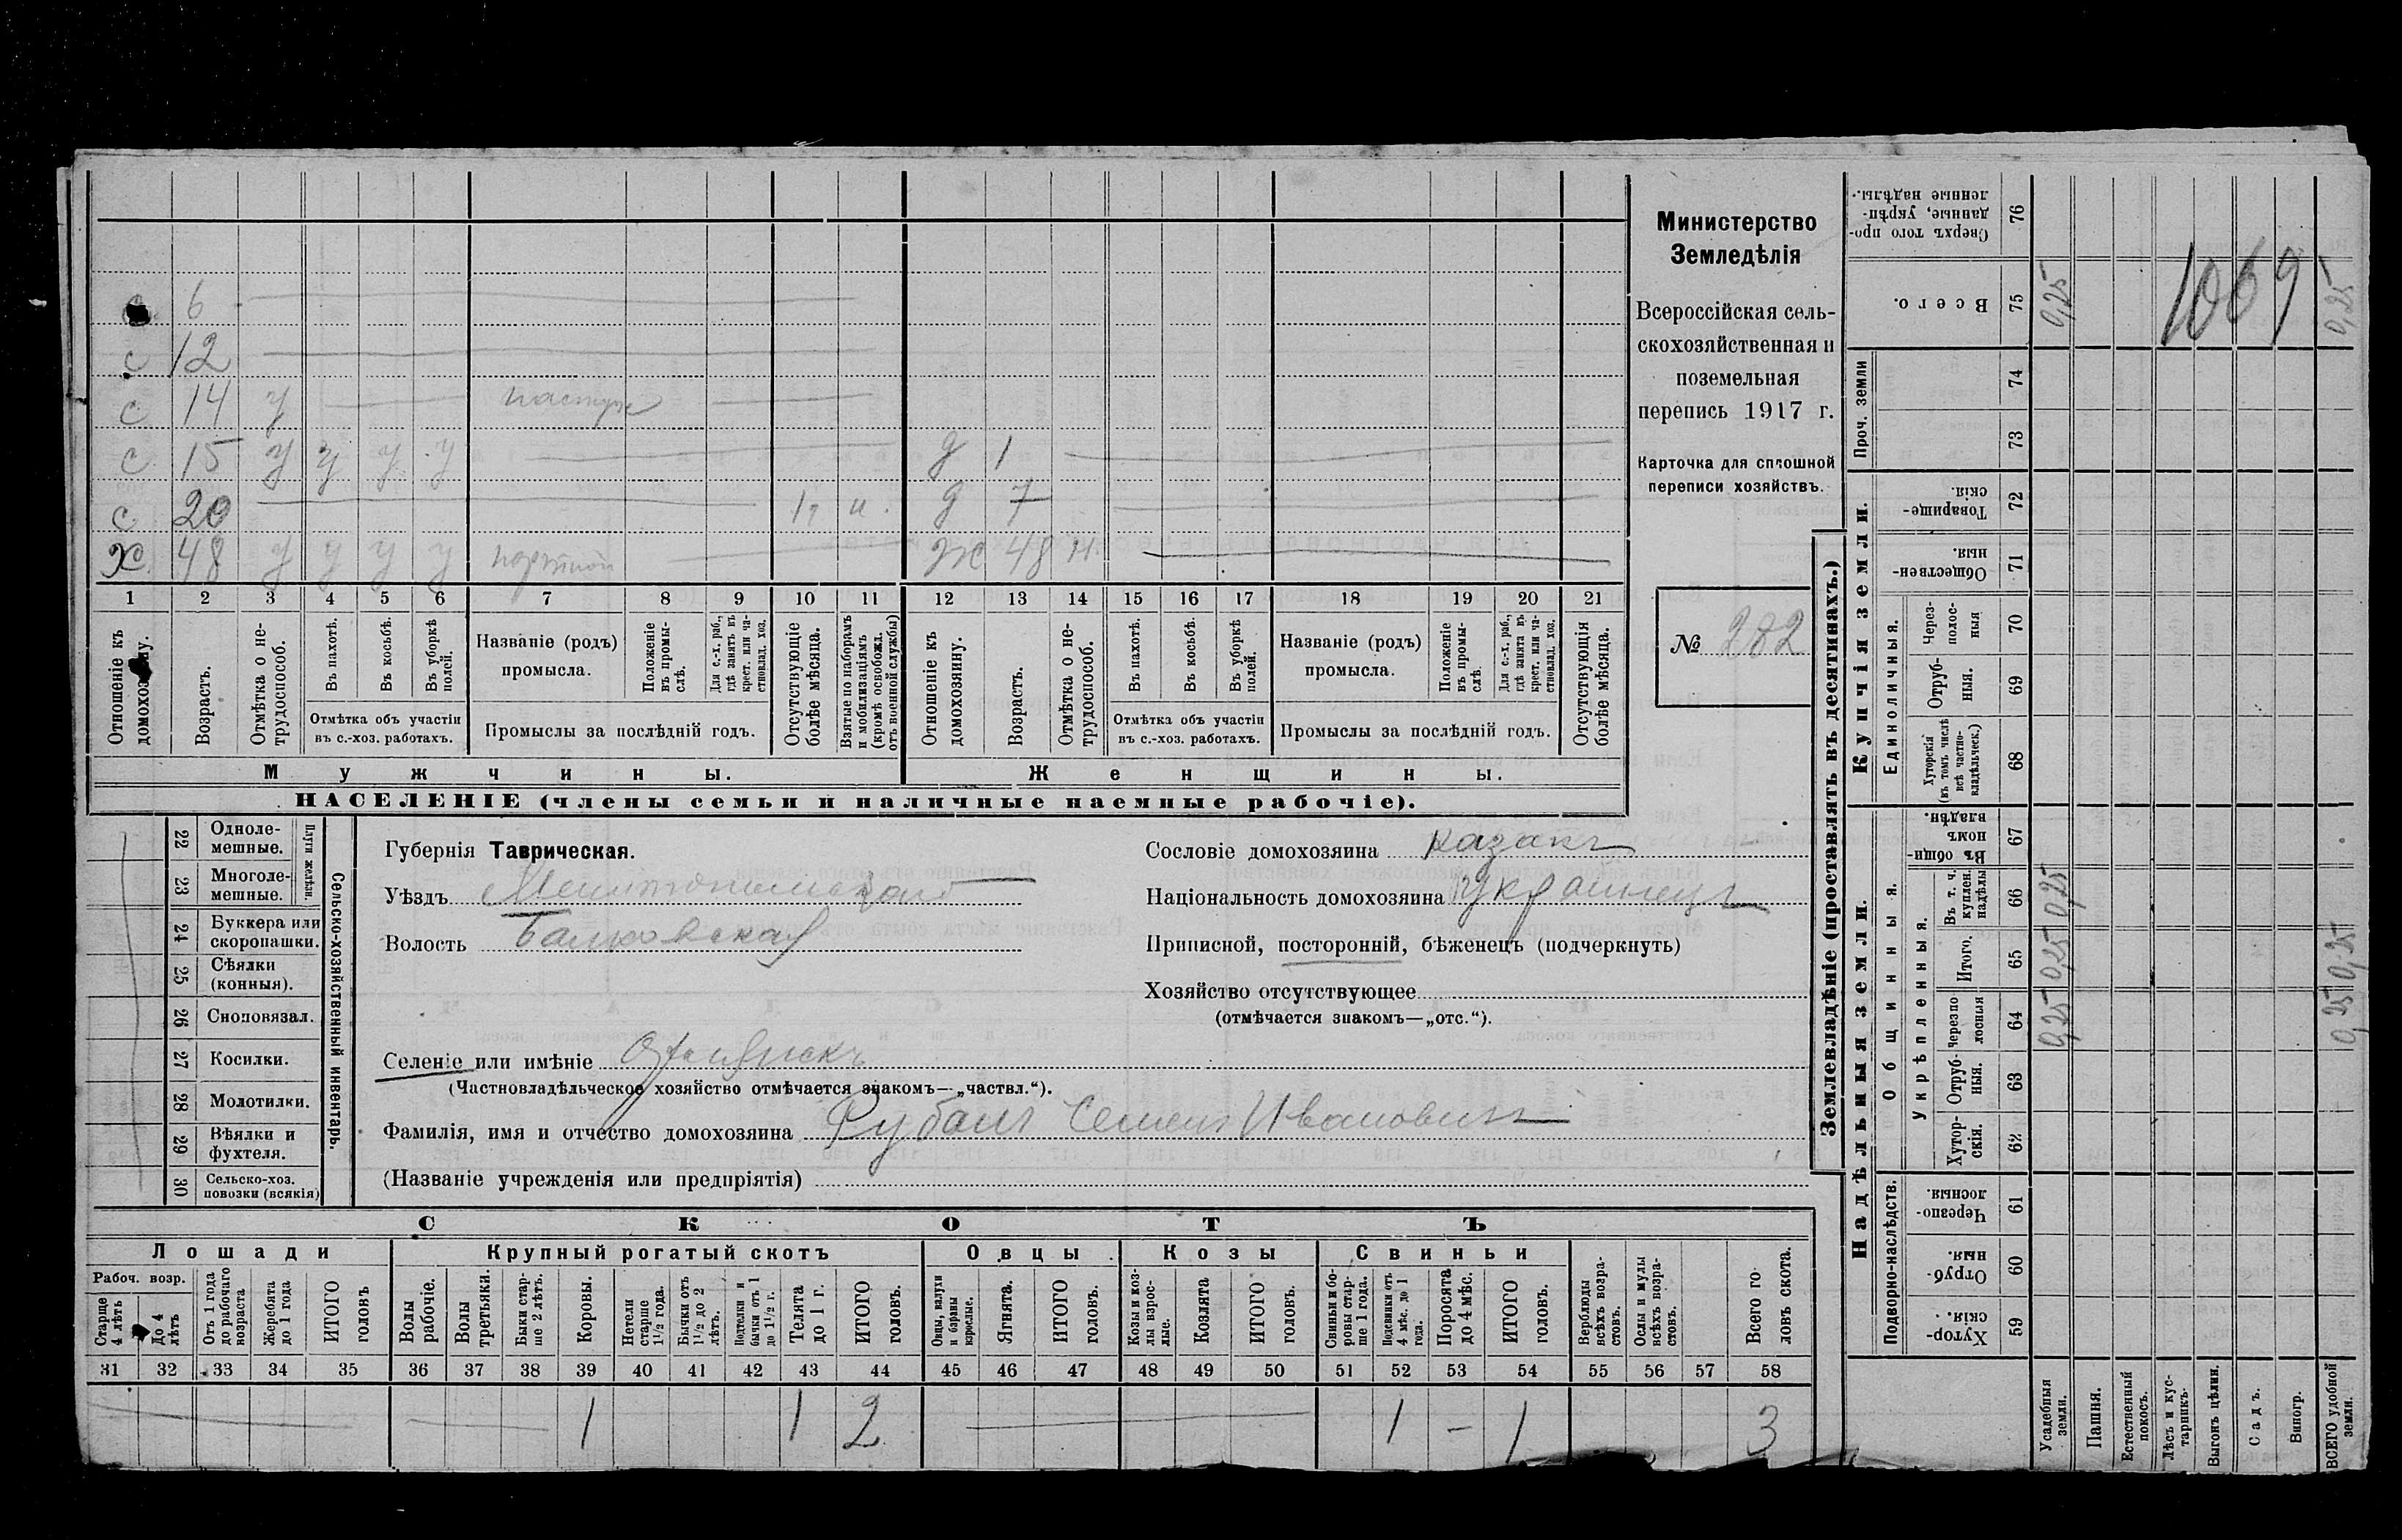 с. 6
с 12
с 14 у пастух
с 15 у у у у д 1
с 20 1г и. д 7
х. 48 у у у у портной ж 48 н.
1 2 3 4 5 6 7 8 9 10 11 12 13 14 15 16 17 18 19 20 21
Отношеніе къ домохозяину.
Возрастъ.
Отмѣтка о не-трудоспособ.
Въ пахотѣ.
Въ косьбѣ.
Въ уборкѣ полей.
Отмѣтка объ участіи въ с.-хоз. работахъ.
Названіе (родъ) промысла.
Положеніе въ промы-слѣ.
Для с.-х. раб., гдѣ занятъ въ крест. или ча-стновлад. хоз.
Промыслы за послѣдній годъ.
Отсутствующіе болѣе мѣсяца.
Взятые по наборамъ и мобилизаціямъ (кромѣ освобожд. отъ военной службы)
Отношеніе къ домохозяину.
Возрастъ.
Отмѣтка о не-трудоспособ.
Въ пахотѣ.
Въ косьбѣ.
Въ уборкѣ полей.
Отмѣтка объ участіи въ с.-хоз. работахъ.
Названіе (родъ) промысла.
Положеніе въ промы-слѣ.
Для с.-х. раб., гдѣ занята въ крест. или ча-стновлад. хоз.
Промыслы за послѣдній годъ.
Отсутствующія болѣе мѣсяца.
Мужчины. Женщины.
НАСЕЛЕНІЕ (члены семьи и наличные наемные рабочіе).
Министерство
Земледѣлія
Всероссійская сель-
скохозяйственная и
поземельная
перепись 1917 г.
Карточка для сплошной
переписи хозяйствъ.
№ 282
22 Одноле-мешные.
23 Многоле-мешные.
Плуги желѣзн.
24 Буккера или скоропашки.
25 Сѣялки (конныя).
26 Сноповязал.
27 Косилки.
28 Молотилки.
29 Вѣялки и фухтеля.
30 Сельско-хоз. повозки (всякія)
Сельско-хозяйственный инвентарь.
Губернія Таврическая.
Уѣздъ Мелитопольскій
Волость Балковская
Селеніе или имѣніе
(Частновладѣльческое хозяйство отмѣчается знакомъ—„частвл.“).
Фамилія, имя и отчество домохозяина Рубанъ Семенъ Ивановичъ
(Названіе учрежденія или предпріятія)
Сословіе домохозяина казакъ
Національность домохозяина украинецъ
Приписной, посторонній, бѣженецъ (подчеркнуть)
Хозяйство отсутствующее
(отмѣчается знакомъ—„отс.“).
СКОТЪ
Лошади Крупный рогатый скотъ Овцы Козы Свиньи
Рабоч. возр.
Старше 4 лѣтъ
До 4 лѣтъ
Отъ 1 года до рабочаго возраста
Жеребята до 1 года
ИТОГО головъ
Волы рабочіе.
Волы третьяки.
Быки стар-ше 2 лѣтъ.
Коровы.
Нетели старше 1½ года.
Бычки отъ 1½ до 2 лѣтъ.
Подтелки и бычки отъ 1 до 1½ г.
Телята до 1 г.
ИТОГО головъ.
Овцы, валухи и бараны взрослые.
Ягнята.
ИТОГО головъ.
Козы и коз-лы взрос-лые.
Козлята
ИТОГО головъ.
Свиньи и бо-ровы стар-ше 1 года.
Подсвинки отъ 4 мѣс. до 1 года.
Поросята до 4 мѣс.
ИТОГО головъ.
Верблюды всѣхъ возра-стовъ.
Ослы и мулы всѣхъ возра-стовъ.
Всего го-ловъ скота.
31 32 33 34 35 36 37 38 39 40 41 42 43 44 45 46 47 48 49 50 51 52 53 54 55 56 57 58
1 1 2 1 – 1 3
Землевладѣніе (проставлять въ десятинахъ.)
Надѣльныя земли. Купчія земли. Проч. земли
Подворно-наслѣдств. Общинныя. Укрѣпленныя. Единоличныя.
76 Сверхъ того про-данные, укрѣп-ленные надѣлы.
75 Всего. 0,25 1069 0,25
74
73
72 Товарище-скія.
71 Обществен-ныя.
70 Через-полос-ныя
69 Отруб-ныя.
68 Хуторскія (въ томъ числѣ всѣ частно-владѣльческ.)
67 Въ общин-номъ владѣн.
66 Въ т. ч. куплен. надѣлы 0,25
65 Итого. 0,25 0,25
64 Черезпо-лосныя 0,25 0,25
63 Отруб-ныя.
62 Хутор-скія.
61 Черезпо-лосныя.
60 Отруб-ныя.
59 Хутор-скія.
Усадебныя земли.
Пашня.
Естественный покосъ.
Лѣсъ и кус-тарникъ.
Выгонъ цѣлин.
Садъ.
Виногр.
ВСЕГО удобной земли.